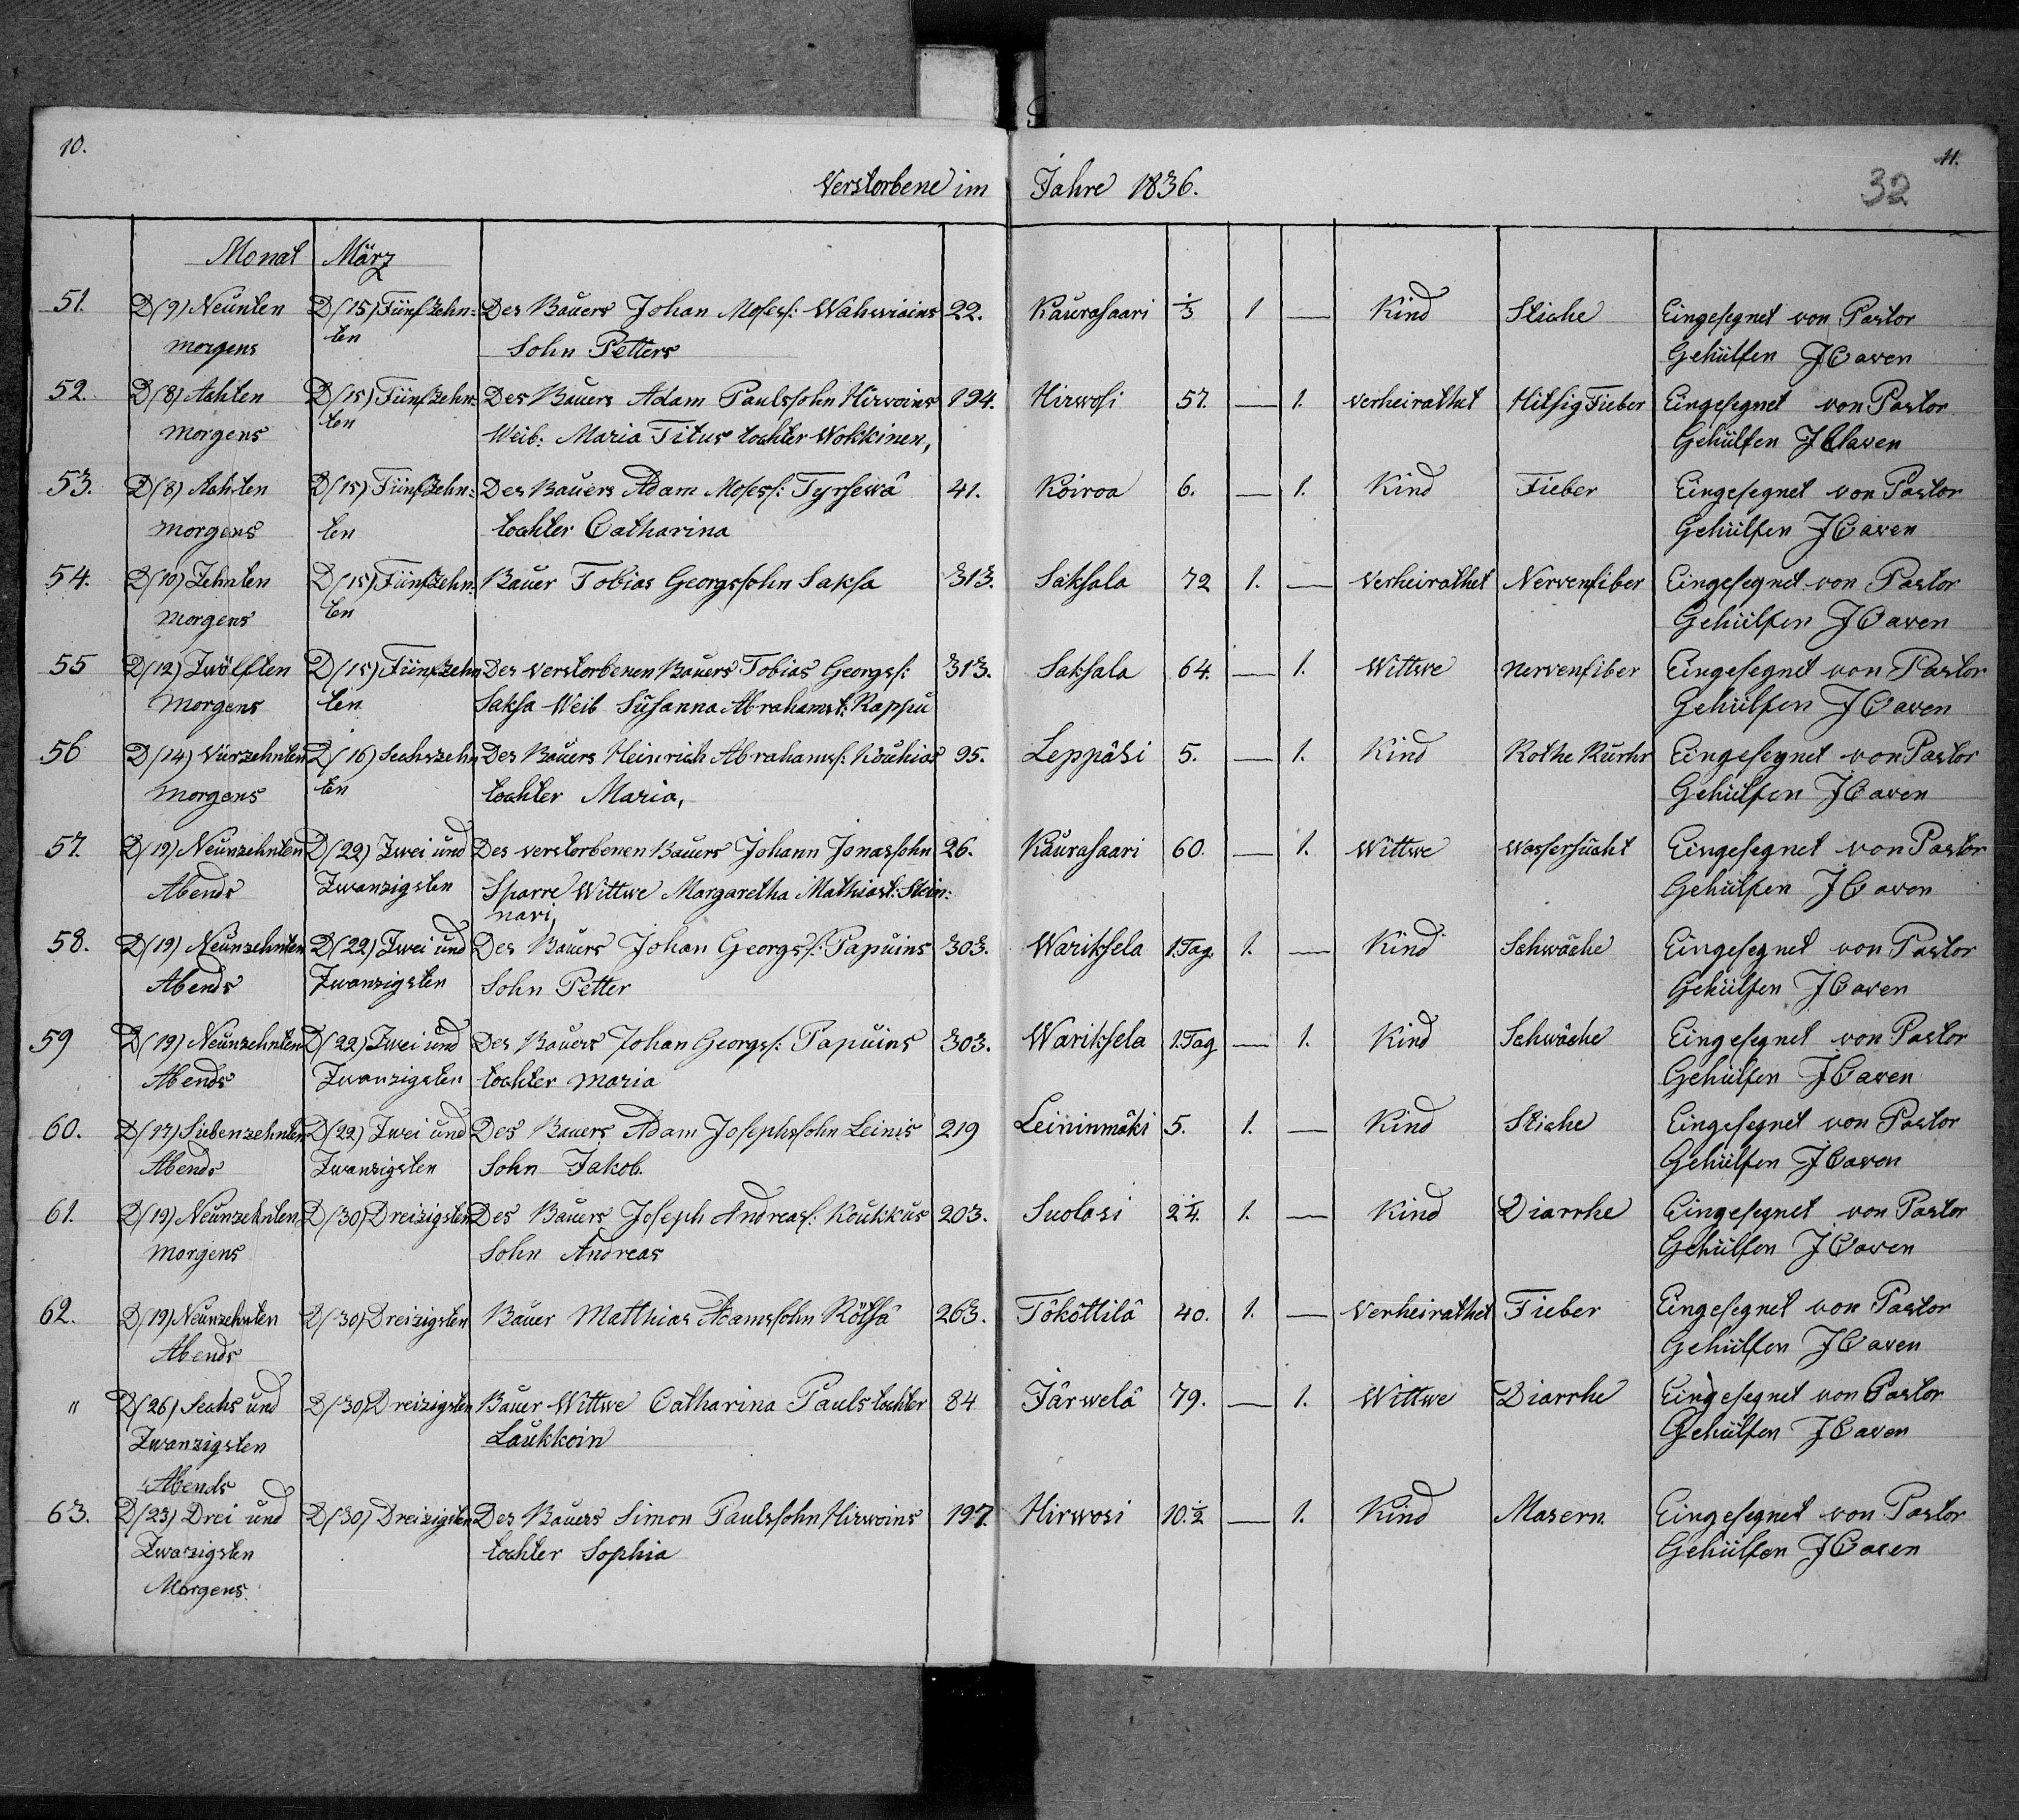 10.
11.
32
Verstorbene im Jahre 1836.
Monat März
51. D (9) Neunten D (15) Fünfzehn= Des Bauers Johan Moses s: Wahwiains 22. Kaurasaari 1/3 1 — Kind Stiche Eingesegnet von Pastor
morgens ten Sohn Petters Gehülfen J Caven
52. D (8) Achten D (15) Fünfzehn= Des Bauers Adam Paulssohn Hirwoins 194. Hirwosi 57. — 1. verheirathet Hitsig Fieber Eingesegnet von Pastor
morgens ten Weib: Maria Titus tochter Wokkinen, Gehülfen J Caven
53. D (8) Achten D (15) Fünfzehn= Des Bauers Adam Moses s: Tyrsewä 41. Koiroa 6. — 1. Kind Fieber Eingesegnet von Pastor
morgens ten tochter Catharina Gehülfen J Caven
54. D (10) Zehnten D (15) Fünfzehn= Bauer Tobias Georgssohn Saksa 313. Saksala 72 1. — Verheirathet Nervenfiber Eingesegnet von Pastor
morgens ten Gehülfen J Caven
55 D (12) Zwölften D (15) Fünfzehn Des verstorbenen Bauers Tobias Georgs s: 313. Saksala 64. — 1. Wittwe nervenfiber Eingesegnet von Pastor
morgens ten Saksa Weib Susanna Abrahamst: Rappu Gehülfen J Caven
56 D (14) Vierzehnten D (16) Sechszehn Des Bauers Heinrich Abrahams s: Kouhias 95. Leppäsi 5. — 1. Kind Rothe Rurhr Eingesegnet von Pastor
morgens ten tochter Maria, Gehülfen J Caven
57. D (19) Neunzehnten D (22) Zwei und Des verstorbenen Bauers Johann Jonassohn 26. Kaurasaari 60. — 1. Wittwe wassersucht Eingesegnet von Pastor
Abends Zwanzigsten Sparre Wittwe Margaretha Mathiast: Stein= Gehülfen J Caven
nari,
58. D (19) Neunzehnten D (22) Zwei und Des Bauers Johan Georgs s: Papuins 303. Wariksela 1. Tag. 1. — Kind Schwäche Eingesegnet von Pastor
Abends Zwanzigsten Sohn Petter Gehülfen J Caven
59 D (19) Neunzehnten D (22) Zwei und Des Bauers Johan Georgs s: Papuins 303. Wariksela 1. Tag — 1. Kind Schwäche Eingesegnet von Pastor
Abends Zwanzigsten tochter maria Gehülfen J Caven
60. D (17) Siebenzehnten D (22) Zwei und Des Bauers Adam Josephssohn Leinis 219 Leininmäki 5. 1. — Kind Stiche Eingesegnet von Pastor
Abends Zwanzigsten Sohn Jakob. Gehülfen J Caven
61. D (19) Neunzehnten D (30) Dreizigsten Des Bauers Joseph Andreas s: Koukkus 203. Suolasi 2 1/4. 1. — Kind Diarrhe Eingesegnet von Pastor
morgens Sohn Andreas Gehülfen J Caven
62. D (19) Neunzehnten D (30) Dreizigsten Bauer Matthias Adamssohn Rötsä 263. Tököttilä 40. 1. — Verheirathet Fieber Eingesegnet von Pastor
Abends Gehülfen J Caven
" D (26) Sechs und D (30) Dreizigsten Bauer Wittwe Catharina Pauls tochter 84 Järwelä 79. — 1. Wittwe Diarrhe Eingesegnet von Pastor
Zwanzigsten Laukkoin Gehülfen J Caven
Abends
63. D (23) Drei und D (30) Dreizigsten Des Bauers Simon Paulssohn Hirwoins 197. Hirwosi 10. 1/2 — 1. Kind Masern. Eingesegnet von Pastor
Zwazigsten tochter Sophia Gehülfen J Caven
Morgens.